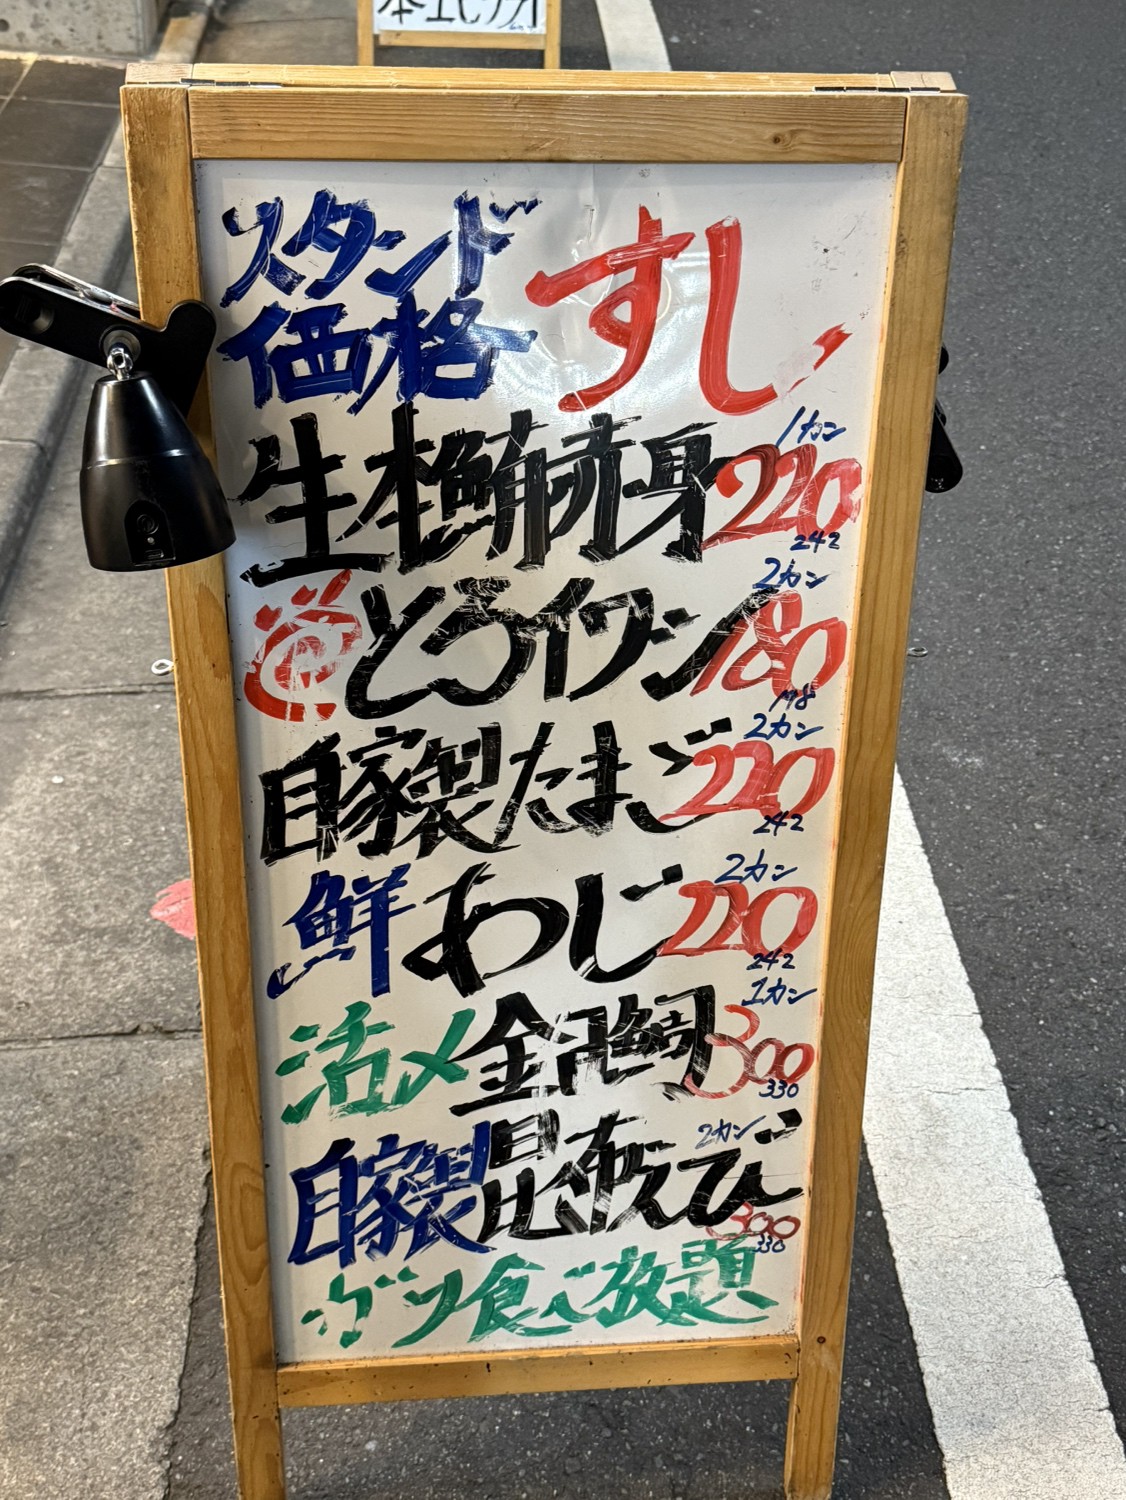 スタンド
価格
すし
1カン
生本鮪赤身220
242
2カン
とろイワシ180
198
2カン
自家製たまご220
242
2カン
鮮あじ220
242
1カン
活〆金目鯛300
330
2カン
自家製昆布〆えび
300
330
ガリ食べ放題